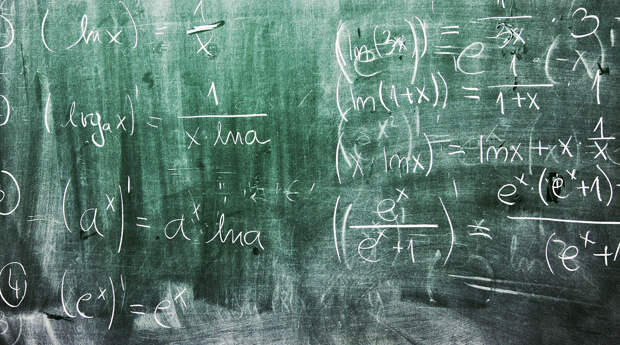 (ln x)' = 1/x
(log_a x)' = 1/(x · ln a)
(a^x)' = a^x · ln a
(4) (e^x)' = e^x
(ln(3x))' = 1/3x · 3
(ln(1+x))' = 1/(1+x) · 1
(x · ln x)' = ln x + x · 1/x
(e^x/(e^x+1))' = e^x · (e^x+1)
(e^x+1